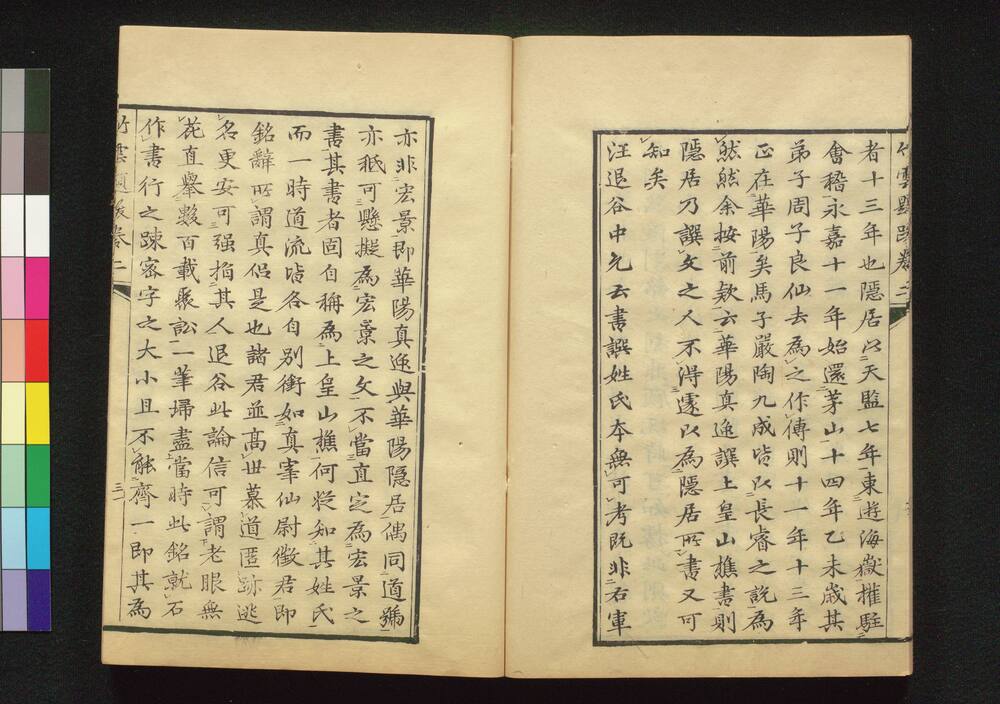 竹雲題跋卷二
者十三年也隱居以天監七年東遊海嶽權駐
會稽永嘉十一年始還茅山十四年乙未歲其
弟子周子良仙去為之作傳則十一年十三年
正在華陽矣馬子嚴陶九成皆以長睿之說為
然然余按前欵云華陽真逸譔上皇山樵書則
隱居乃譔文之人不得遂以為隱居所書又可
知矣
汪退谷中允云書譔姓氏本無可考既非右軍
亦非宏景即華陽真逸與華陽隱居偶同道號
亦秪可懸擬為宏景之文不當直定為宏景之
書其書者固自稱為上皇山樵何從知其姓氏
而一時道流皆各自別銜如真宰仙尉徵君即
銘辭所謂真侶是也諸君並高世慕道匿跡逃
名更安可强指其人退谷此論信可謂老眼無
花直舉數百載聚訟一筆埽盡當時此銘就石
作書行之踈密字之大小且不能齊一即其為
竹雲題跋卷二
三